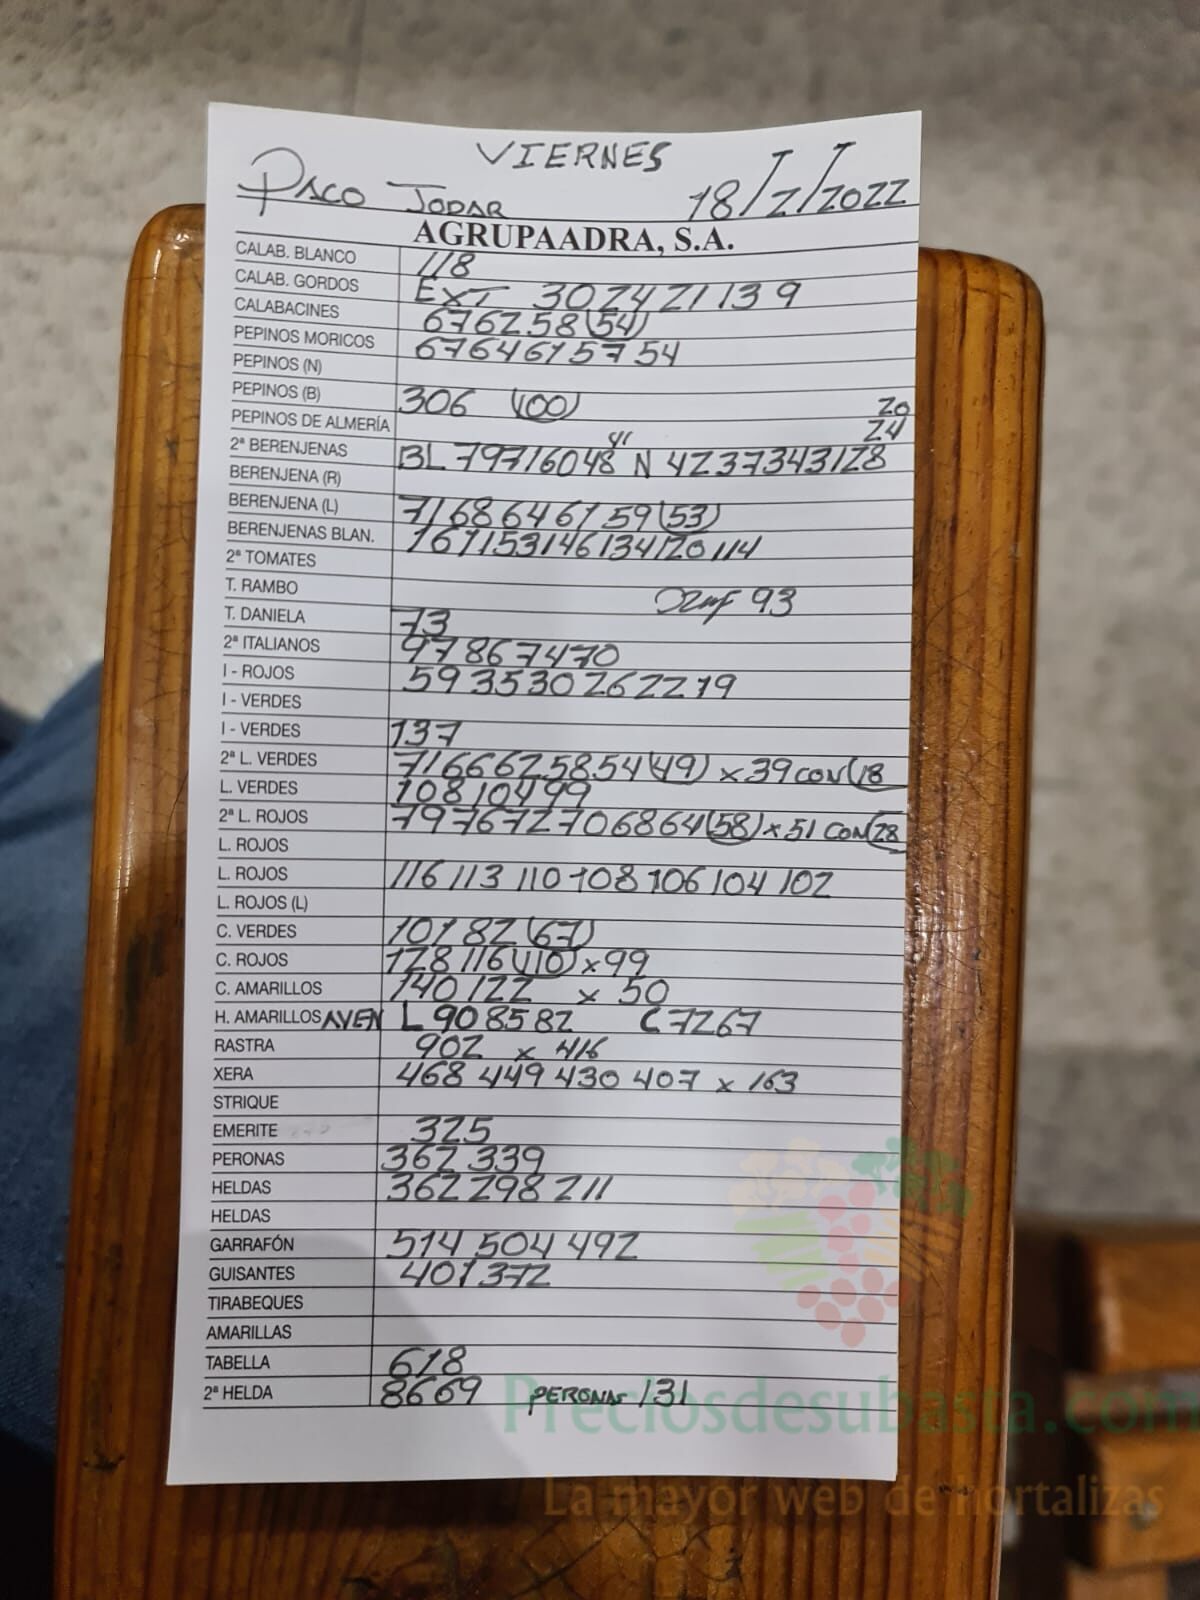 VIERNES
PACO JODAR 18/2/2022
AGRUPAADRA, S.A.
CALAB. BLANCO 118
CALAB. GORDOS EXT 30 24 21 13 9
CALABACINES 67 62 58 (54)
PEPINOS MORICOS 67 64 61 57 54
PEPINOS (N)
PEPINOS (B) 306 (100) 20
PEPINOS DE ALMERÍA 41 24
2ª BERENJENAS BL 79 71 60 48 N 42 37 34 31 28
BERENJENA (R)
BERENJENA (L) 71 68 64 61 59 (53)
BERENJENAS BLAN. 161 153 146 134 120 114
2ª TOMATES
T. RAMBO 93
T. DANIELA 73
2ª ITALIANOS 97 86 74 70
I - ROJOS 59 35 30 26 22 19
I - VERDES
I - VERDES 137
2ª L. VERDES 71 66 62 58 54 (49) x 39 CON (18
L. VERDES 108 104 99
2ª L. ROJOS 79 76 72 70 68 64 (58) x 51 CON (28
L. ROJOS
L. ROJOS 116 113 110 108 106 104 102
L. ROJOS (L)
C. VERDES 101 82 (67)
C. ROJOS 128 116 (110) x 99
C. AMARILLOS 140 122 x 50
H. AMARILLOS AVEN L 90 85 82 C 72 67
RASTRA 902 x 416
XERA 468 449 430 407 x 163
STRIQUE
EMERITE 325
PERONAS 362 339
HELDAS 362 298 211
HELDAS
GARRAFÓN 514 504 492
GUISANTES 401 372
TIRABEQUES
AMARILLAS
TABELLA 618
2ª HELDA 86 69 PERONAS 131
Preciosdesubasta.com
La mayor web de hortalizas